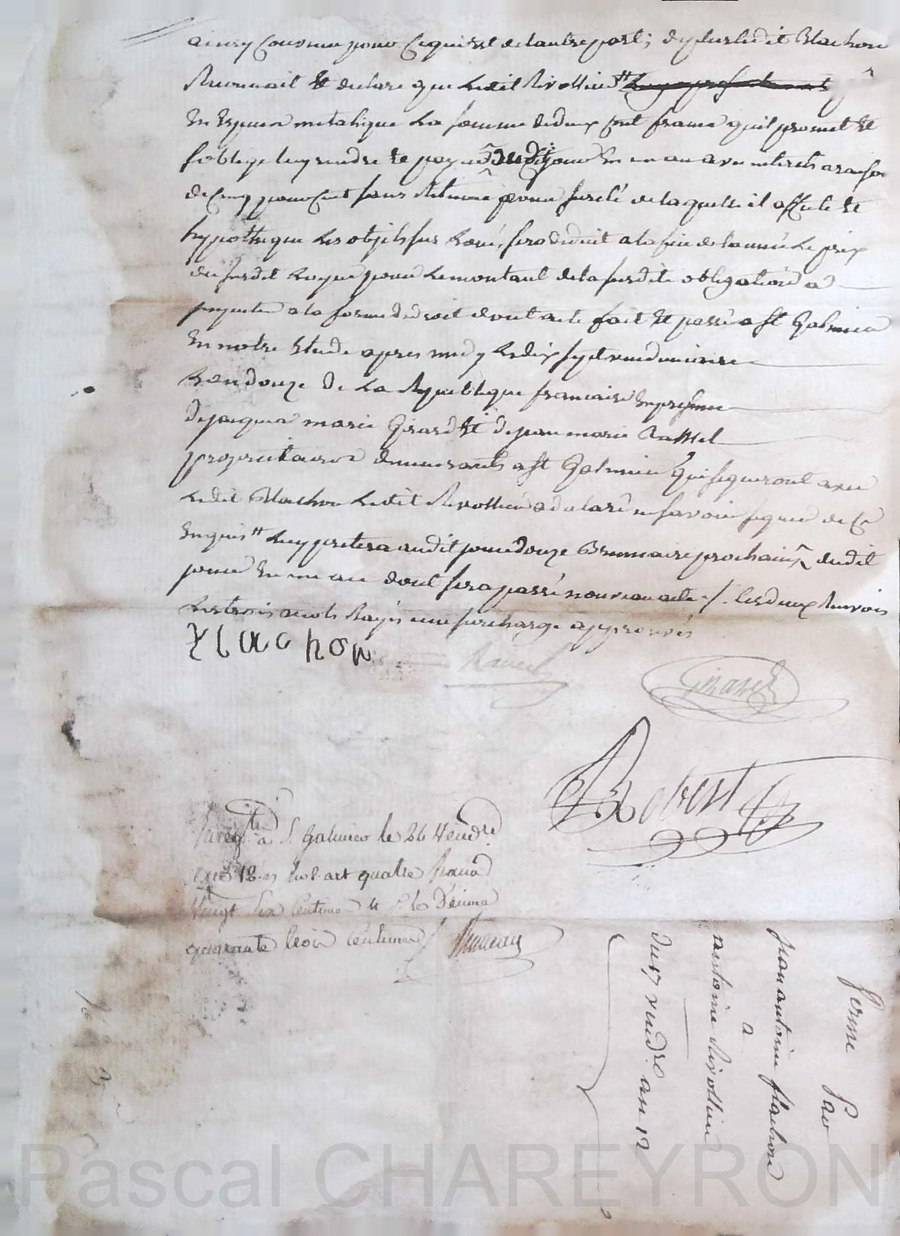 ainsy convenu pour ce qui est de l'autre part; de plus ledit Flachon
Reconnait et declare que ledit Rivollier
En Espece metalique La somme de deux cent francs qu'il promet et
s'oblige luy rendre et payer dudit jour En un an avec interets a raison
de Cinq pour Cent sans Retenue pour sureté de laquelle il affecte et
hypotheque Les objets sus Loués, sera deduit a la fin de l'année Le prix
du susdit pour Le montant de la susdite obligation a
la forme du droit dont acte fait et passé a St Galmier
En notre Etude apres midy Le dix sept vendemiaire
L'an douze De La Republique francaise En presence
De jacques marie Girard Et De jean marie
proprietaires demeurants a St Galmier qui signeront avec
Ledit Flachon Ledit Rivollier a declaré ne savoir signer de ce
Enquis luy pretera audit jour Douze Brumaire prochain dudit
jour En un an dont sera passé nouveau acte /. Les deux Renvois
Les trois mots Rayés une surcharge approuvés
Flachon
Girard
Robert
à St Galmier le 24 Vendre
an 12 quatre francs
Vingt six Centimes
quarante trois Centimes
ferme Par
jean antoine flachon
a
antoine Rivollier
Du 17 vendre an 12
Pascal CHAREYRON